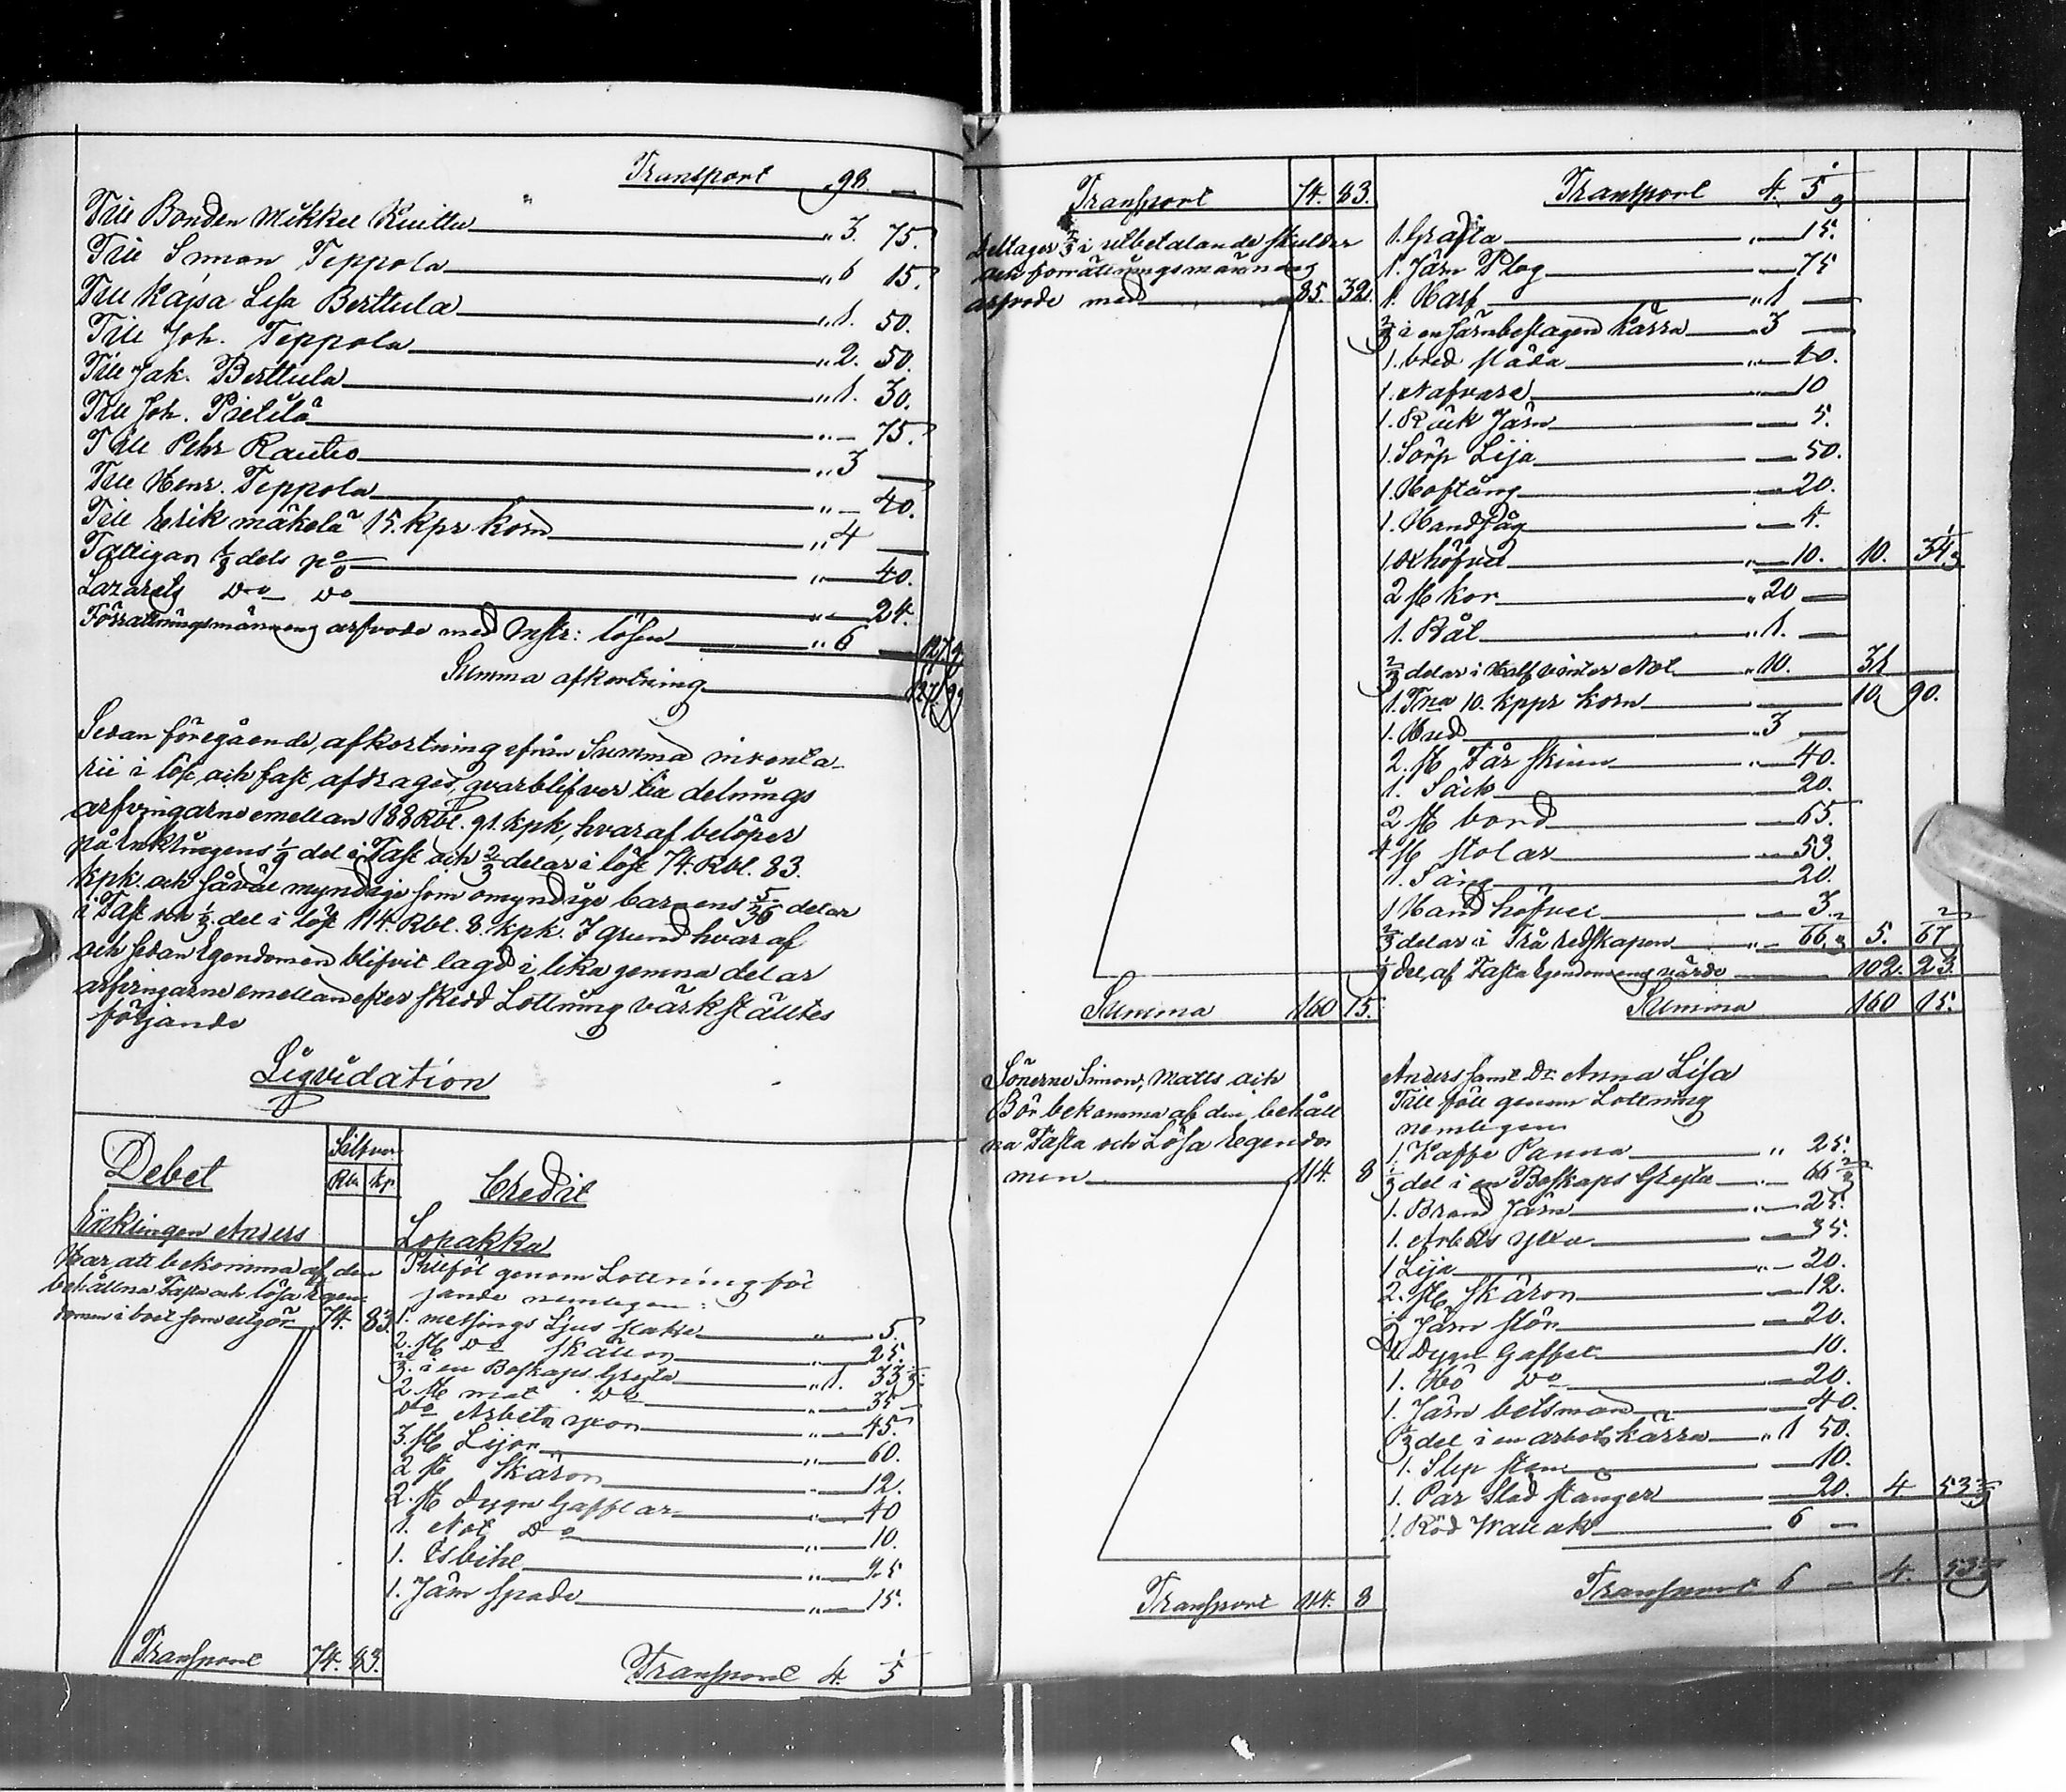 Transport „ 98. —
Till Bonden Mikkel Knuttu „ 3. 75.
Till Simon Teppola „ 6 15.
Till Kajsa Lisa Berttula „ 1. 50.
Till Joh. Teppola „ 2. 50.
Till Jak. Berttula „ 1. 30.
Till Joh. Pietilä „ — 75.
Till Pehr Rautio „ 3 —
Till Henr. Teppola „ — 40.
Till Erik mäkelä 15. kpr korn „ 4 —
Fattigan ⅛ dels p% „ — 40.
Lazarets do do „ — 24.
Förrättningsmännens arfvode med Enskr: lösen „ 6 — 127 99
Summa afkortning 127. 99
Sedan föregående afkortning ifrån Summa inventa-
rii i löst och fast afdrages, qvarblifver till delnings
arfvingarne emellan 188 Rbl. 91. kpk, hvaraf belöper
på Enklingens 1/9 del i Fast och 2/3 delar i löst 74. Rbl. 83.
kpk. och såväl myndige som omyndige barnens 5/36 delar
i Fast och 1/3 del i löst 114. Rbl. 8. kpk. I grund hvaraf
och sedan Egendomen blifvit lagd i lika gemna delar
arfvingarne emellan efter skedd Lottning värkställtes
följande
Liqvidation
Debet Silfver Credit
Rbl kp
Enklingen Anders Lopakka
Har att bekomma af den Tillföl genom Lottning föl
behållna Fasta och lösa Egen- jande nemligen:
domen i boet som utgör 74. 83. 1. messings Ljus stake „ — 5.
2. st do skållor „ — 25.
2/3. i en Boskaps Gryta „ 1. 33 1/3.
2 st mat do „ — 35
do Arbets yxor „ — 45.
3. st Lijor „ — 60.
2 st Skäror „ — 12.
2. st Dygn Gafflar „ — 40
1. Not do „ — 10.
1. Isbihl „ — 25
1. Järn Spade „ — 15.
Transport 74. 83. Transport 4. 5 1/3
Transport 74. 83. Transport 4. 5 1/3
Deltager 2/3 i utbetalande skulder 1. Grafta „ — 15.
och förrättningsmännens 1. Järn Plog — 75
arfvode med 85. 32. 1. Harf „ 1 —
2/3 i en Järnbeslagen kärra „ 3 —
1. bred släda „ — 40.
1. Nafvare „ — 10
1. Räck Järn — 5.
1. Sörp Lija — 50.
1. Hoftång — 20.
1. Handsåg — 4.
1. höfvel „ — 10. 10. 34 1/3
2 st kor „ 20 —
1. Kål „ 1. —
2/3 delar i Half vinter Not „ 10. 31
1. Tna 10. kppr korn 10. 90.
1. Hud „ 3 —
2. st Får skinn „ — 40.
1. Säck — 20.
2 st bord — 65
4 st stolar — 53.
1. Säng — 20.
1 Hand höfvel — 3.
2/3 delar i Trä redskapen „ — 66 2/3 5. 67 2/3
1/9 del af Fasta Egendomens värde 102. 23.
Summa 160 15. Summa 160 15.
Sönerne Simon, Matts och Anders samt Dr Anna Lisa
Bör bekomma af den behåll Till föll genom Lottning
na Fasta och Lösa Egendo nemligen
men 114. 8 1. Kaffe Panna „ 25.
1/3 del i en Boskaps Gryta — 66 2/3
1. Brand Järn „ — 25.
1. Arbets yxa — 35.
1 Lija „ — 20.
2. st Skäror — 12.
Järn stör — 20.
1 Dygn Gaffel — 10.
1. Hö do — 20.
1. Järn betsman — 40.
1/3 del i en arbets kärra „ 1 50.
1. Slip sten — 10.
1. Par Släd stänger 20. 4 53 2/3
1. Röd Wallak 6 —
Transport 114. 8 Transport 6 — 4. 53 2/3